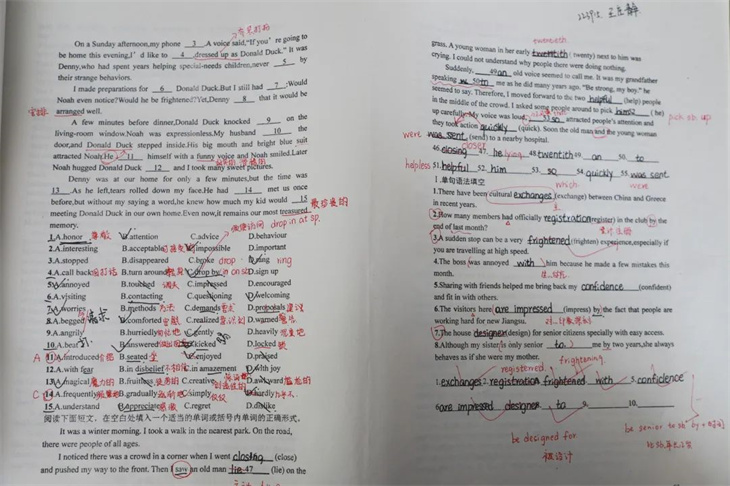 On a Sunday afternoon,my phone 3 .A voice said,"If you're going to
be home this evening,I'd like to 4 dressed up as Donald Duck." It was
Denny,who had spent years helping special-needs children,never 5 by
their strange behaviors.
I made preparations for 6 Donald Duck.But I still had 7 :Would
Noah even notice?Would he be frightened?Yet,Denny 8 that it would be
arranged well.
A few minutes before dinner,Donald Duck knocked 9 on the
living-room window.Noah was expressionless.My husband 10 the
door,and Donald Duck stepped inside.His big mouth and bright blue suit
attracted Noah.He 11 himself with a funny voice and Noah smiled.Later
Noah hugged Donald Duck 12 and I took many sweet pictures.
Denny was at our home for only a few minutes,but the time was
13 .As he left,tears rolled down my face.He had 14 met us once
before,but without my saying a word,he knew how much my kid would 15
meeting Donald Duck in our own home.Even now,it remains our most treasured
memory.
drop in at sp.
1.A.honor B.attention C.advice D.behaviour
2.A.interesting B.acceptable C.impossible D.important
3.A.stopped B.disappeared C.broke drop D.rang ring
4.A.call back B.turn around C.drop by in on sb D.sign up
5.A.annoyed B.touched C.impressed D.encouraged
6.A.visiting B.contacting C.questioning D.welcoming
7.A.worries B.methods 方法 C.demands D.proposals 建议
8.A.begged B.comforted C.realized D.warned
9.A.angrily B.hurriedly C.gently D.heavily
10.A.beat B.answered C.kicked D.locked
A 11.A.introduced B.seated 坐 C.enjoyed D.praised
12.A.with fear B.in disbelief C.in amazement D.with joy
13.A.magical B.fruitless C.creative D.awkward
C 14.A.frequently B.gradually C.simply 仅仅 D.hardly
15.A.understand B.appreciate 感激 C.regret D.dislike
阅读下面短文，在空白处填入一个适当的单词或括号内单词的正确形式。
It was a winter morning. I took a walk in the nearest park. On the road,
there were people of all ages.
I noticed there was a crowd in a corner when I went closing (close)
and pushed my way to the front. Then I saw an old man lie 47 (lie) on the
twentieth
grass. A young woman in her early twentith (twenty) next to him was
crying. I could not understand why people there were doing nothing.
Suddenly, 49 an old voice seemed to call me. It was my grandfather
speaking 50 to me as he did many years ago. "Be strong, my boy." he
seemed to say. Therefore, I moved forward to the two helpful (help) people
in the middle of the crowd. I asked some people around to pick him 52 (he)
pick sb up
up carefully. My voice was loud, 53 so attracted people's attention and
they took action quickly (quick). Soon the old man and the young woman
were
was sent (send) to a nearby hospital.
closer
46. closing 47. he lying 48. twentith 49. an 50. to
helpless
51. helpful 52. him 53. so 54. quickly 55. was sent
which were
1.单句语法填空
1.There have been cultural exchanges (exchange) between China and Greece
in recent years.
2.How many members had officially registration (register) in the club by the
end of last month?
3.A sudden stop can be a very frightened (frighten) experience,especially if
you are travelling at high speed.
4.The boss was annoyed with him because he made a few mistakes this
month.
5.Sharing with friends helped me bring back my confidence (confident)
and fit in with others.
6.The visitors here are impressed (impress) by the fact that people are
working hard for new Jiangsu.
7.The house designer (design) for senior citizens specially with easy access.
8.Although my sister is only senior to me by two years,she always
behaves as if she were my mother.
registered frightening
1. exchanges 2. registration frightened with 5. confidence
6 are impressed designer , to
be designed for
被设计